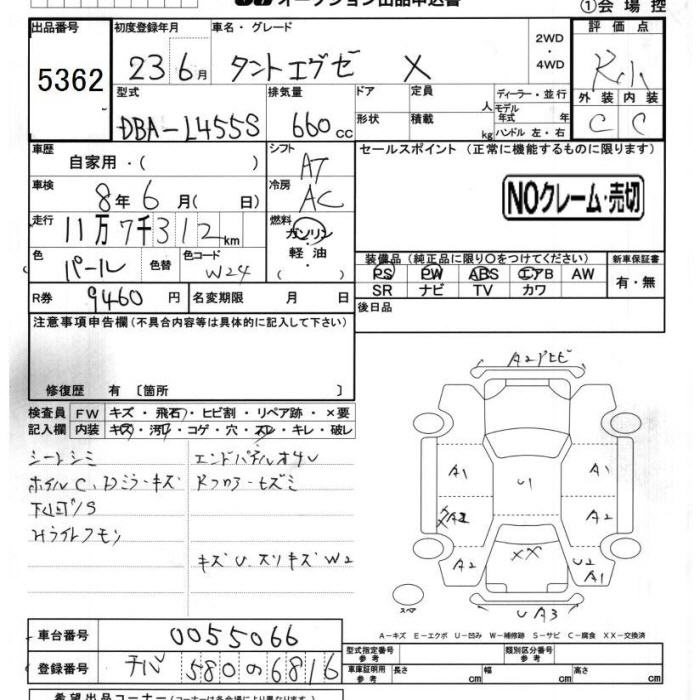 オークション出品申込書
①会場控
出品番号
5362
初度登録年月
23 6月
車名・グレード
タントエグゼ X
2WD・4WD
評価点
型式
DBA-L455S
排気量
660 cc
ドア
定員
人
ディーラー・並行
モデル年式 年
形状
積載
kg
ハンドル 左・右
外装 内装
C C
車歴
自家用・( )
シフト
AT
セールスポイント (正常に機能するものに限ります)
NOクレーム・売切
車検
8年6月( 日)
冷房
AC
走行
11万7千312km
燃料
ガソリン
軽油
( ・ )
色
パール
色替
色コード
W24
装備品(純正品に限り○をつけてください)
新車保証書
PS PW ABS エアB AW
有・無
SR ナビ TV カワ
R券
9460円
名変期限 月 日
後日品
注意事項申告欄(不具合内容等は具体的に記入して下さい)
修復歴 有 〔箇所 〕
検査員 FW キズ・飛石・ヒビ割・リペア跡・×要
記入欄 内装 キズ・汚れ・コゲ・穴・スレ・キレ・破レ
シートシミ
ホイルC、Dミラーキズ
下廻りS
Hライトクモリ
エンドパネルオサレ
Rフロアーヒズミ
キズU、スリキズW2
A2ﾜﾋﾋﾞ
A1
U1
A1
A2
A2
XX
A2
U2
A1
UA3
スペア
A-キズ E-エクボ U-凹み W-補修跡 S-サビ C-腐食 XX-交換済
車台番号
0055066
登録番号
チバ 580の6816
型式指定番号 参考
類別区分番号 参考
車庫証明用 参考
長さ cm
幅 cm
高さ cm
希望出品コーナー(コーナーは各会場により異なります)